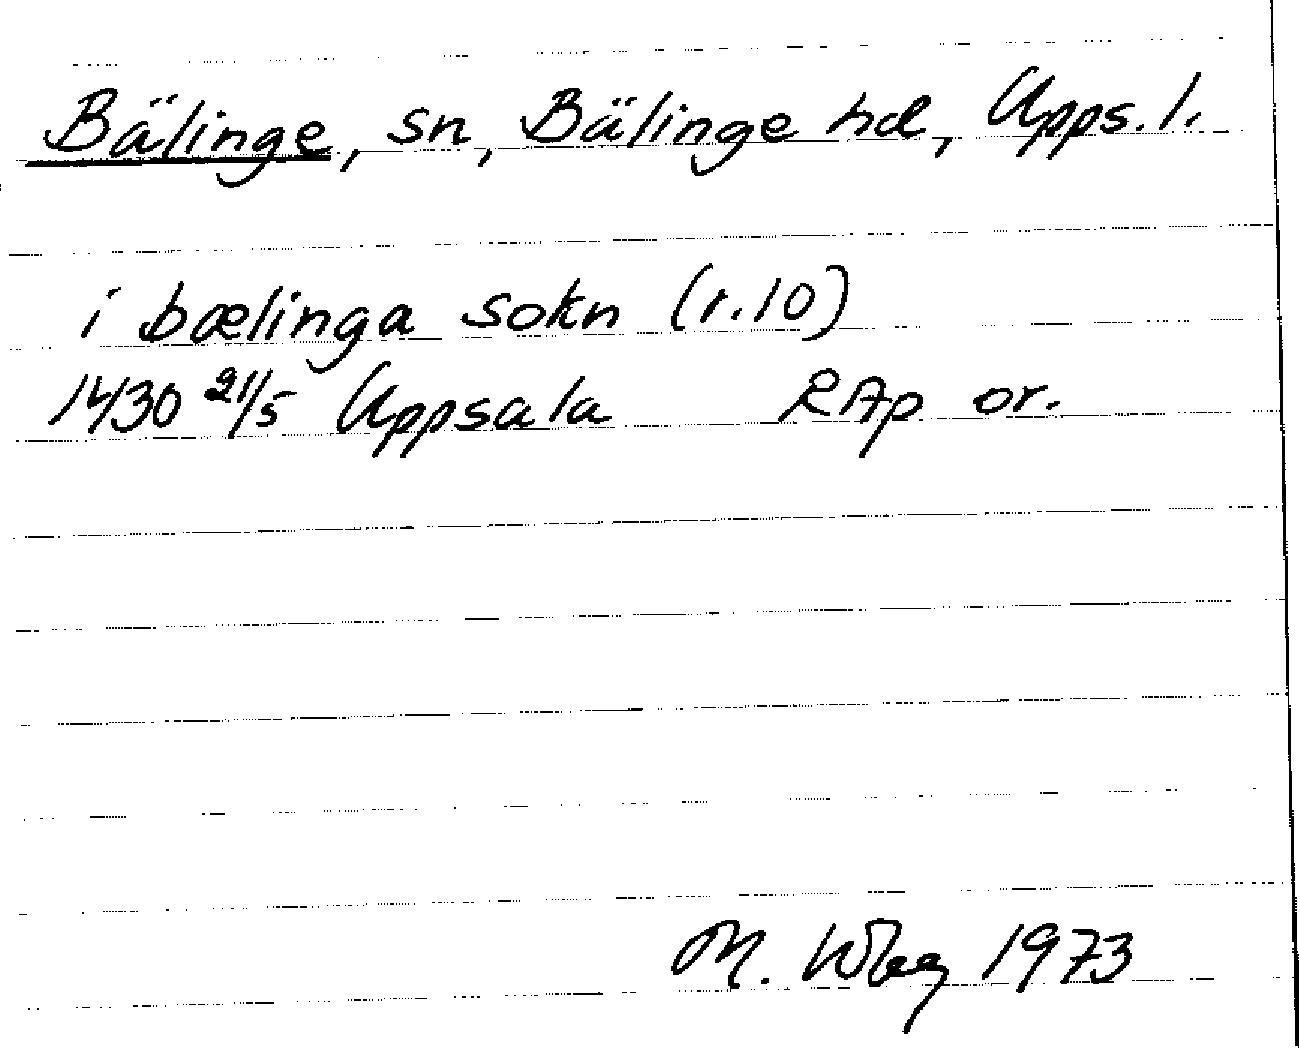 Bälinge, sn, Bälinge hd, Upps. l.
i bælinga sokn (r.10)
1430 21/5 Uppsala RAp or.
M. Wbg 1973